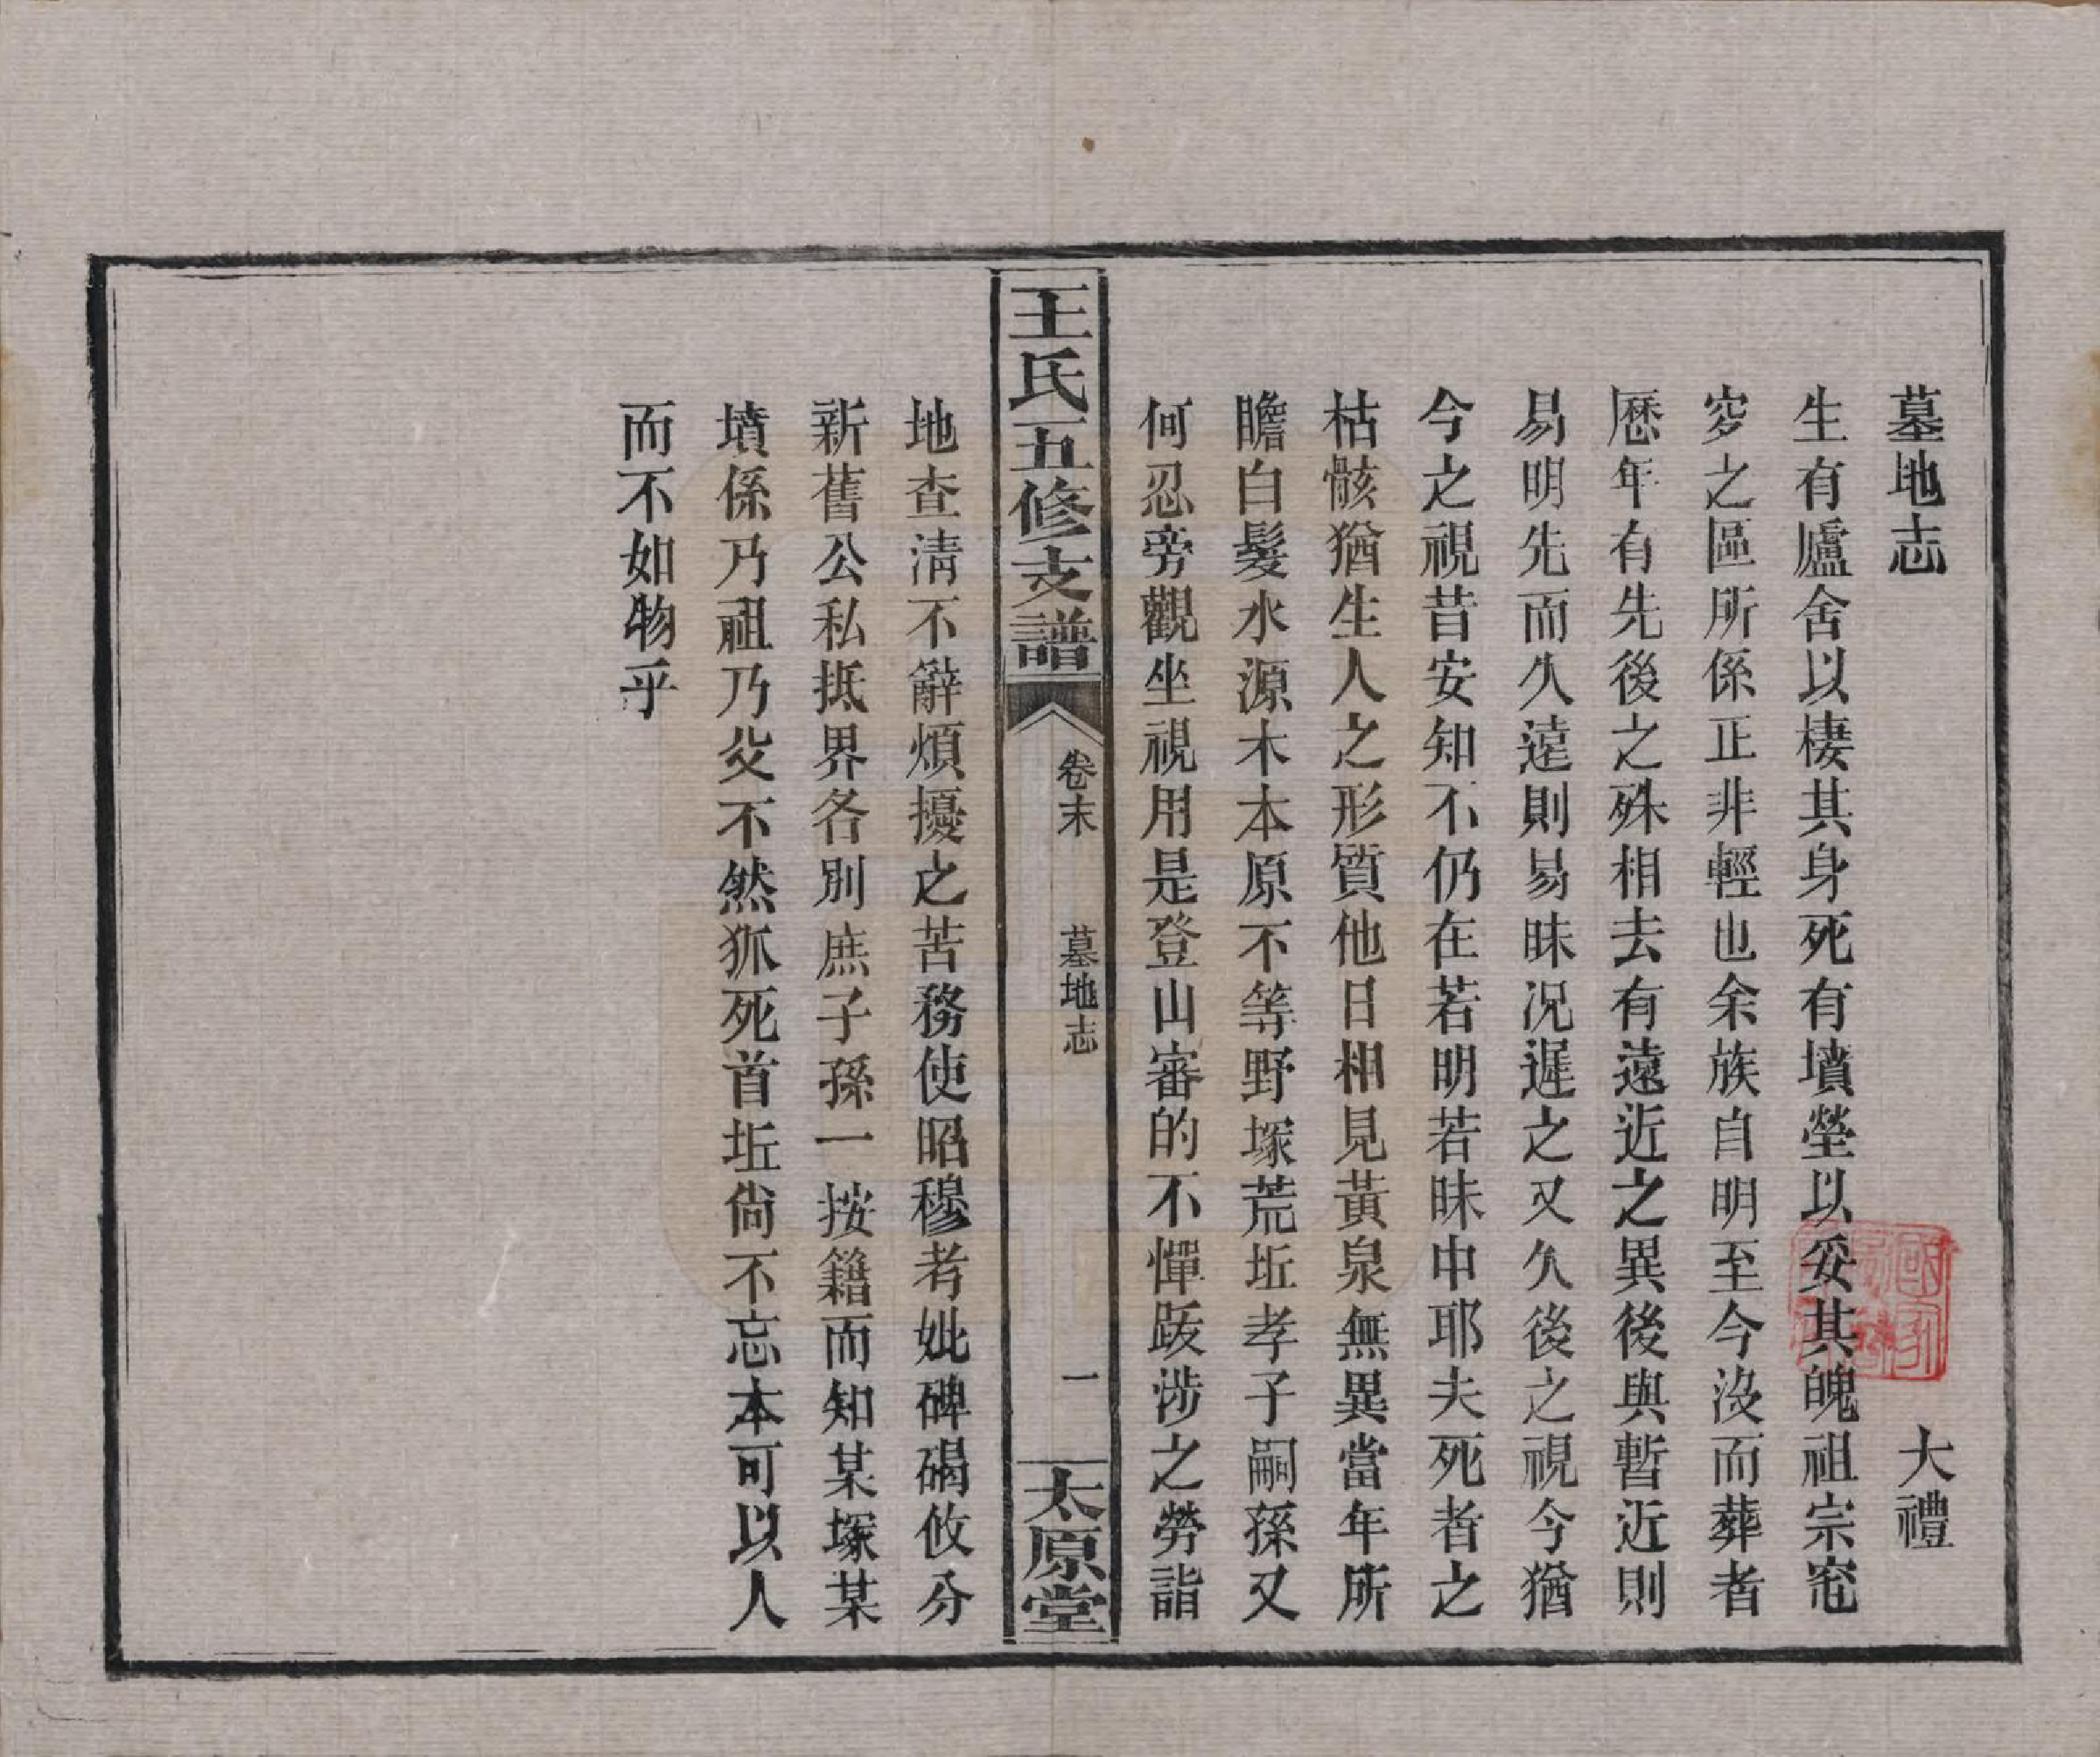 墓地志　大禮
生有廬舍以棲其身死有墳塋以妥其魄祖宗窀
穸之區所係正非輕也余族自明至今沒而葬者
歷年有先後之殊相去有遠近之異後與暫近則
易明先而久遠則易昧况遲之又久後之視今猶
今之視昔安知不仍在若明若昧中耶夫死者之
枯骸猶生人之形質他日相見黃泉無異當年所
瞻白髮水源木本原不等野塚荒坵孝子嗣孫又
何忍旁觀坐視用是登山審的不憚跋涉之勞詣
王氏五修支譜
卷末
墓地志
一
太原堂
地查清不辭煩擾之苦務使昭穆考妣碑碣攸分
新舊公私抵界各別庶子孫一按籍而知某塚某
墳係乃祖乃父不然狐死首坵尙不忘本可以人
而不如物乎